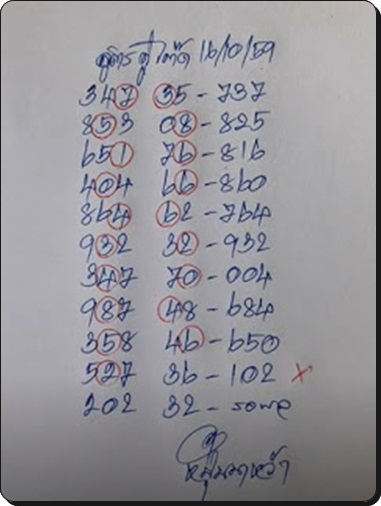 สูตร ปู่ ไต๊ด 16/10/59
347 35 - 737
853 08 - 825
651 76 - 816
404 66 - 860
864 62 - 764
932 32 - 932
347 70 - 004
987 48 - 684
358 46 - 650
527 36 - 102 ×
202 32 -